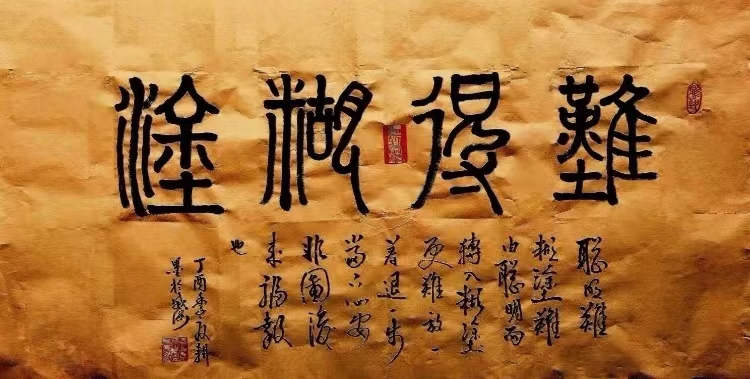 難得糊塗
聰明難
糊塗難
由聰明而
轉入糊塗
更難放一
着退一步
當下心安
非圖後
来福報
也
丁酉耕
墨於